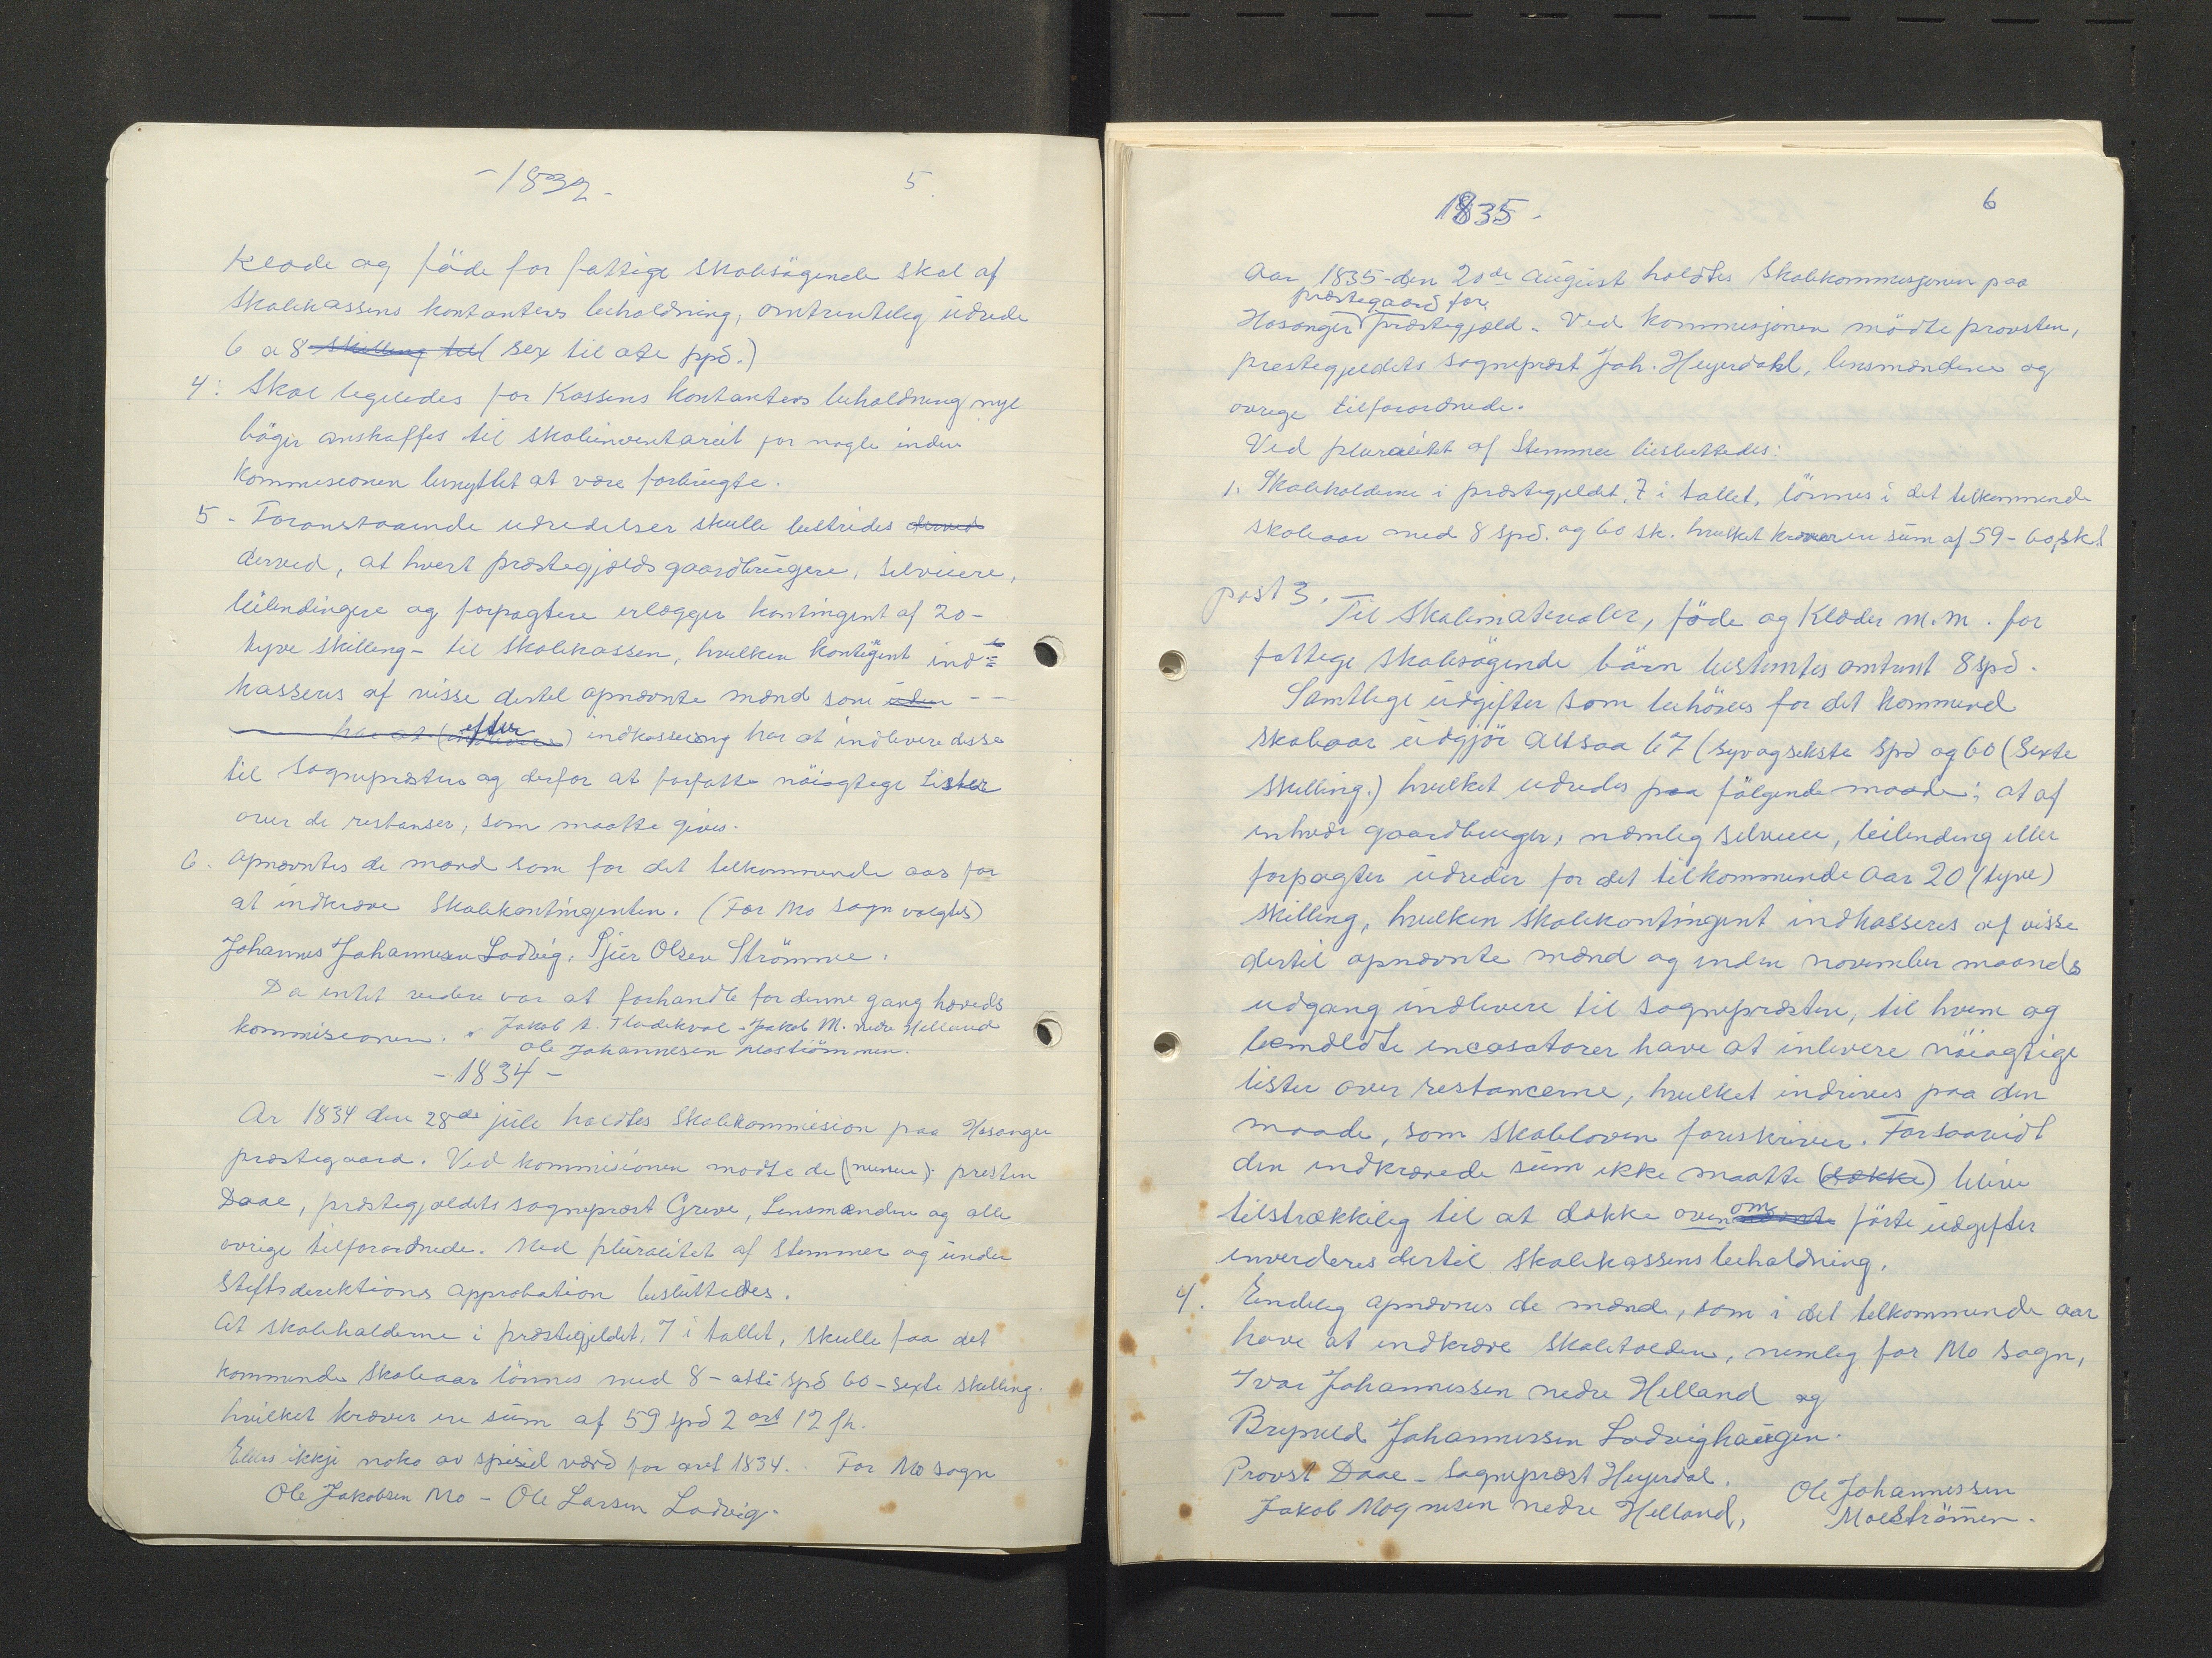 -1832-
5.
Klæde og föde for fattige skolesögende skal af
skolekassens kontanters beholdning, omtrentelig udrede
6 a 8 skilling til (sex til ote spd.)
4: Skal ligeledes for Kassens kontanters beholdning nye
böger anskaffes til skoleinventariet for nogle inden
kommisionen benyttet at være forbrugte.
5 - Foranstaaende udredelser skulle bestrides derved
derved, at hvert præstegjælds gaardbrugere, selveiere,
leilendingere og forpagtere erlægger kontingent af 20-
tyve skilling - til skolekassen, hvilken kontigent ind=
kasseres af visse dertil opnævnte mænd som uden --
har at efter indkassering har at indlevere disse
til sognepræsten og derfor at forfatte nöiagtige Lister
over de restanser, som maatte gives.
6. Opnævntes de mænd som for det tilkommende aar for
at indkræve Skolekontingenten. (For Mo sogn valgtes)
Johannes Johannesen Lodvig, Sjur Olsen Strömme.
Da intet videre var at forhandle for denne gang hæveds
kommisionen. Jakob A. Tladekval - Jakob M. nedre Helland
Ole Johannesen Moströmmen.
-1834-
Ar 1834 den 28de jule holdtes Skolekommision paa Hosanger
præstegaard. Ved kommisionen mödte de presten
Daae, præstegjældets sogneprest Greve, Lensmændene og alle
övrige tilforordnede. Med pluralitet af stemmer og under
Stiftsdirektions approbation besluttedes.
At skoleholderne i præstegjeldet, 7 i tallet, skulle faa det
kommende Skoleaar lönnes med 8 - otte Spd 60 - sexti skilling.
hvilket kræver en sum af 59 spd 2 ort 12 sk.
Ellers ikkje noko av spesiel værd for aret 1834. For Mo sogn
Ole Jakobsen Mo - Ole Larsen Lodvig.
1835.
6
Aar 1835 - den 20de August holdtes Skolekommisjonen paa
præstegaard for
Hosanger Præstegjæld. Ved kommisjonen mödte provsten,
prestegjeldets sogneprest Joh. Heyerdahl, lensmændene og
övrige tilforordnede.
Ved pluralitet af Stemmer besluttedes:
1. Skoleholderne i præstegjeldet, 7 i tallet, lönnes i det tilkommende
skoleaar med 8 spd. og 60 sk. hvilket kræver en sum af 59 - 60 sk.
post 3.
Til Skolematerialer, föde og Klæder m.m. for
fattige skolesögende börn bestemtes omtrent 8 spd.
Samtlige udgifter som behöves for det kommend
skoleaar udgjör altsaa 67 (syvogsekste Spd og 60 (Sexte
skilling.) hvilket udredes paa fölgende maade: at af
enhver gaardbruger, nemlig selveier, leilending eller
forpagter udreder for det tilkommende Aar 20 (tyve)
skilling, hvilken skolekontingent indkasseres af visse
dertil opnævnte mænd og inden november maaneds
udgang indlevere til sognepræsten, til hvem og
bemeldte incasatorer have at inlevere nöiagtige
lister over restancerne, hvilket indrives paa den
maade, som skoleloven foreskriver. Forsaavidt
den indkrævede sum ikke maatte (række) blive
tilstrækkelig til at dække oven om förte udgifter
inverderes dertil skolekassens beholdning.
4. Endelig opnævnes de mænd, som i det tilkommende aar
have at indkræve Skoletolden, nemlig for Mo Sogn,
Ivar Johannessen nedre Helland og
Brynild Johannessen Lodvighaugen.
Provst Daae - Sogneprest Heyerdal.
Jakob Mognesen nedre Helland,
Ole Johannessen
Moeströmen.